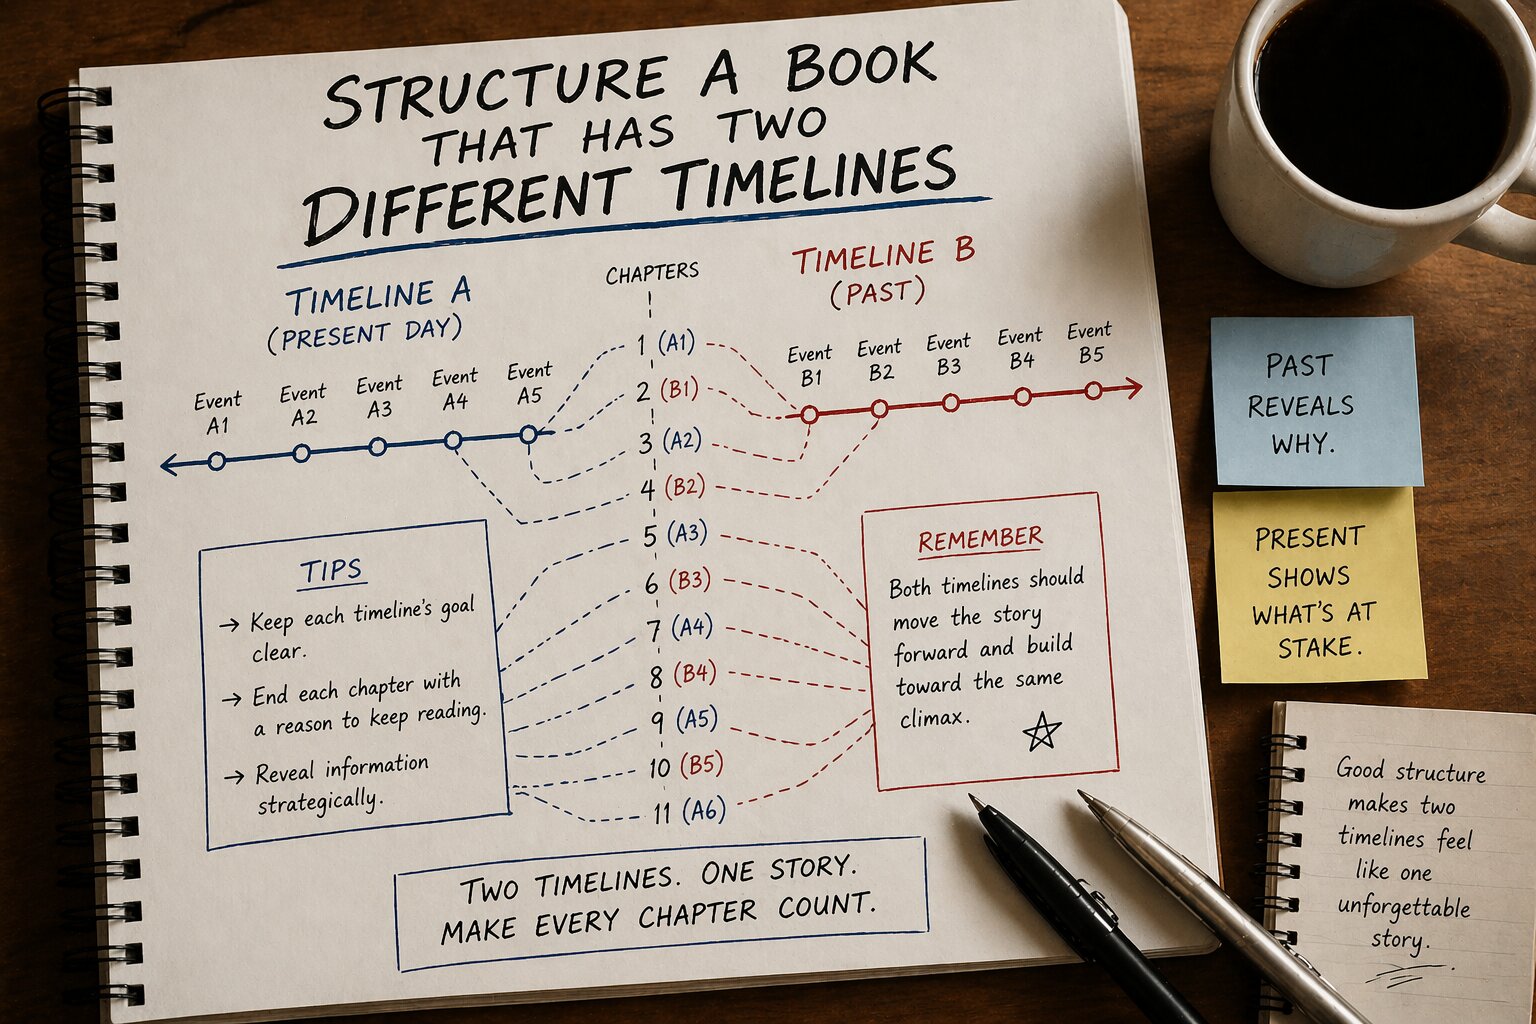 STRUCTURE A BOOK
THAT HAS TWO
DIFFERENT TIMELINES
TIMELINE A
(PRESENT DAY)
Event A1
Event A2
Event A3
Event A4
Event A5
CHAPTERS
1 (A1)
2 (B1)
3 (A2)
4 (B2)
5 (A3)
6 (B3)
7 (A4)
8 (B4)
9 (A5)
10 (B5)
11 (A6)
TIMELINE B
(PAST)
Event B1
Event B2
Event B3
Event B4
Event B5
TIPS
→ Keep each timeline's goal
clear.
→ End each chapter with
a reason to keep reading.
→ Reveal information
strategically.
REMEMBER
Both timelines should
move the story
forward and build
toward the same
climax.
TWO TIMELINES. ONE STORY.
MAKE EVERY CHAPTER COUNT.
PAST
REVEALS
WHY.
PRESENT
SHOWS
WHAT'S AT
STAKE.
Good structure
makes two
timelines feel
like one
unforgettable
story.